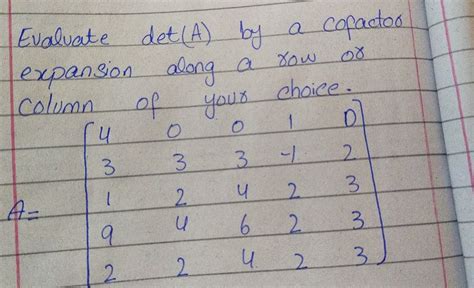 Evaluate det(A) by a cofactor
expansion along a row or
column of your choice.
4 0 0 1 0
3 3 3 -1 2
A= 1 2 4 2 3
9 4 6 2 3
2 2 4 2 3